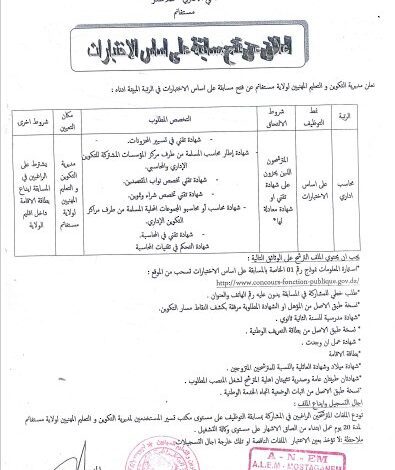 مستغانم
إعلان عن فتح مسابقة على أساس الاختبارات
تعلن مديرية التكوين و التعليم المهنيين لولاية مستغانم عن فتح مسابقة على اساس الاختبارات في الرتبة المبينة ادناه :
الرتبة
نمط التوظيف
شروط الالتحاق
التخصص المطلوب
مكان التعيين
شروط اخرى
محاسب اداري
على اساس الاختبارات
المترشحون الذين يحوزون على شهادة تقني او شهادة معادلة لها
- شهادة تقني في تسيير المخزونات.
- شهادة إطار محاسب المسلمة من طرف مركز المؤسسات المشتركة للتكوين الإداري والمحاسبي.
- شهادة تقني تخصص نواب المقتصدين.
- شهادة تقني تخصص شراء وتموين.
- شهادة محاسب أو محاسبو المجموعات المحلية المسلمة من طرف مراكز التكوين الإداري.
- شهادة تقني في المحاسبة.
شهادة التحكم في تقنيات المحاسبة
مديرية التكوين و التعليم المهنيين لولاية مستغانم
يشترط على الراغبين في المسابقة ايداع بطاقة الاقامة داخل اقليم الولاية
يجب ان يحتوي الملف الترشح على الوثائق التالية :
*استمارة المعلومات نموذج رقم 01 الخاصة بالمسابقة على اساس الاختبارات تسحب من الموقع :
http://www.concours-fonction-publique.gov.dz/
*طلب خطي للمشاركة في المسابقة يدون عليه رقم الهاتف والعنوان .
*نسخة طبق الاصل من المؤهل او الشهادة المطلوبة مرفقة بكشف النقاط مسار التكوين.
*شهادة مدرسية للسنة الثانية ثانوي .
- نسخة طبق الاصل من بطاقة التعريف الوطنية .
* شهادة عمل ان وجدت .
*بطاقة الاقامة
* شهادة ميلاد وشهادة العائلية بالنسبة للمترشحين المتزوجين .
*شهادتان طبيتان عامة وصدرية تثبتان اهلية المترشح لشغل المنصب المطلوب .
*نسخة طبق الاصل من اثبات الوضعية اتجاه الخدمة الوطنية .
اجال التسجيل وايداع الملف :
تودع الملفات المترشحين الراغبين في المشاركة بمسابقة التوظيف على مستوى مكتب تسيير المستخدمين لمديرية التكوين و التعليم المهنيين لولاية مستغانم
لمدة 20 يوم عمل ابتداء من الصاق الاشهار على مستوى وكالة التشغيل .
ملاحظة :لا تؤخذ بعين الاعتبار الملفات الناقصة او تلك خارجة اجال التسجيلات.
A - N - EM
A.L.E.M - MOSTAGANEM